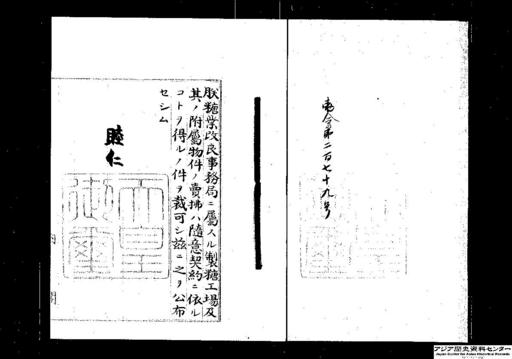 勅令第二百七十九号
朕糖業改良事務局ニ屬スル製糖工場及
其ノ附屬物件ノ賣拂ハ隨意契約ニ依ル
コトヲ得ルノ件ヲ裁可シ茲ニ之ヲ公布
セシム
睦仁
天皇御璽
内閣
アジア歴史資料センター
Japan Center for Asian Historical Records